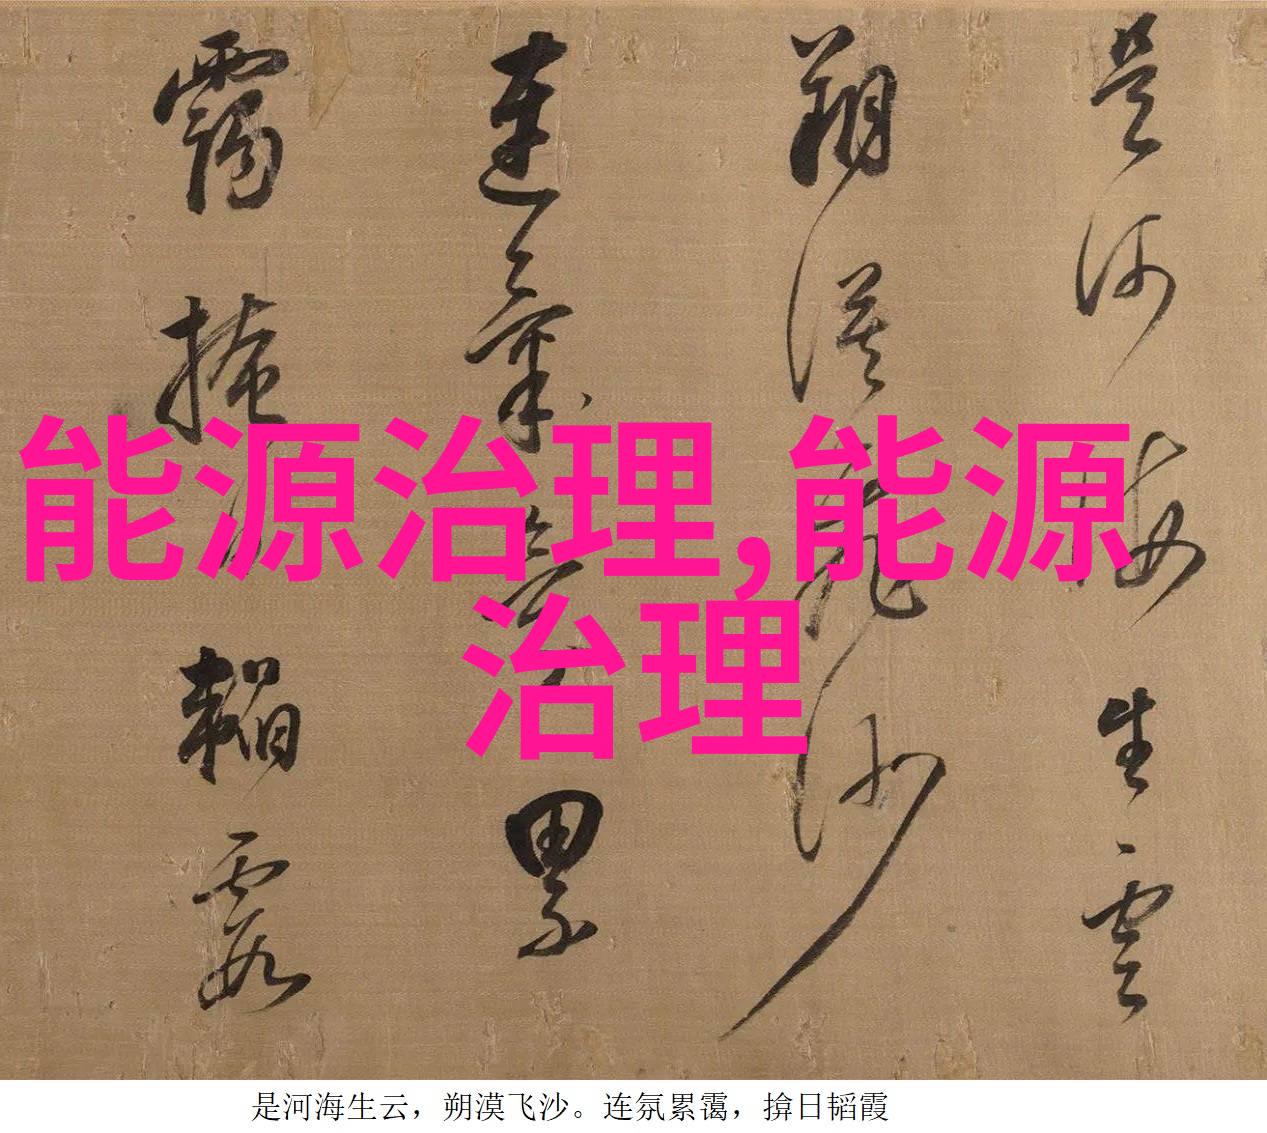 是河海生雲
朔漠飛沙
連氣累
靄掩日韜霞
能源治理,能源
治理
是河海生云，朔漠飞沙。连氛累霭，揜日韬霞